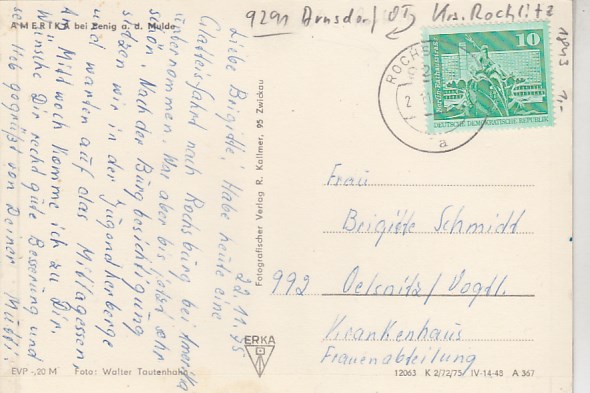 9291 Arnsdorf OT Krs. Rochlitz
18843
1,-
AMERIKA bei Penig a. d. Mulde
22.11.75
Liebe Brigitte! Habe heute eine
Glatteisfahrt nach Rochsburg bei Amerika
unternommen. War aber bis jetzt sehr
schön. Nach der Burgbesichtigung
sitzen wir in der Jugendherberge
und warten auf das Mittagessen
Am Mittwoch komme ich zu Dir.
Wünsche Dir recht gute Besserung und
sei lieb gegrüßt von Deiner Mutti
EVP -,20 M Foto: Walter Tautenhahn
Fotografischer Verlag R. Kallmer, 95 Zwickau
ERKA
ROCHS
a
10
Berlin
DEUTSCHE DEMOKRATISCHE REPUBLIK
Frau
Brigitte Schmidt
992 Oelsnitz/Vogtl.
Krankenhaus
Frauenabteilung
12063 K 2/72/75 IV-14-48 A 367